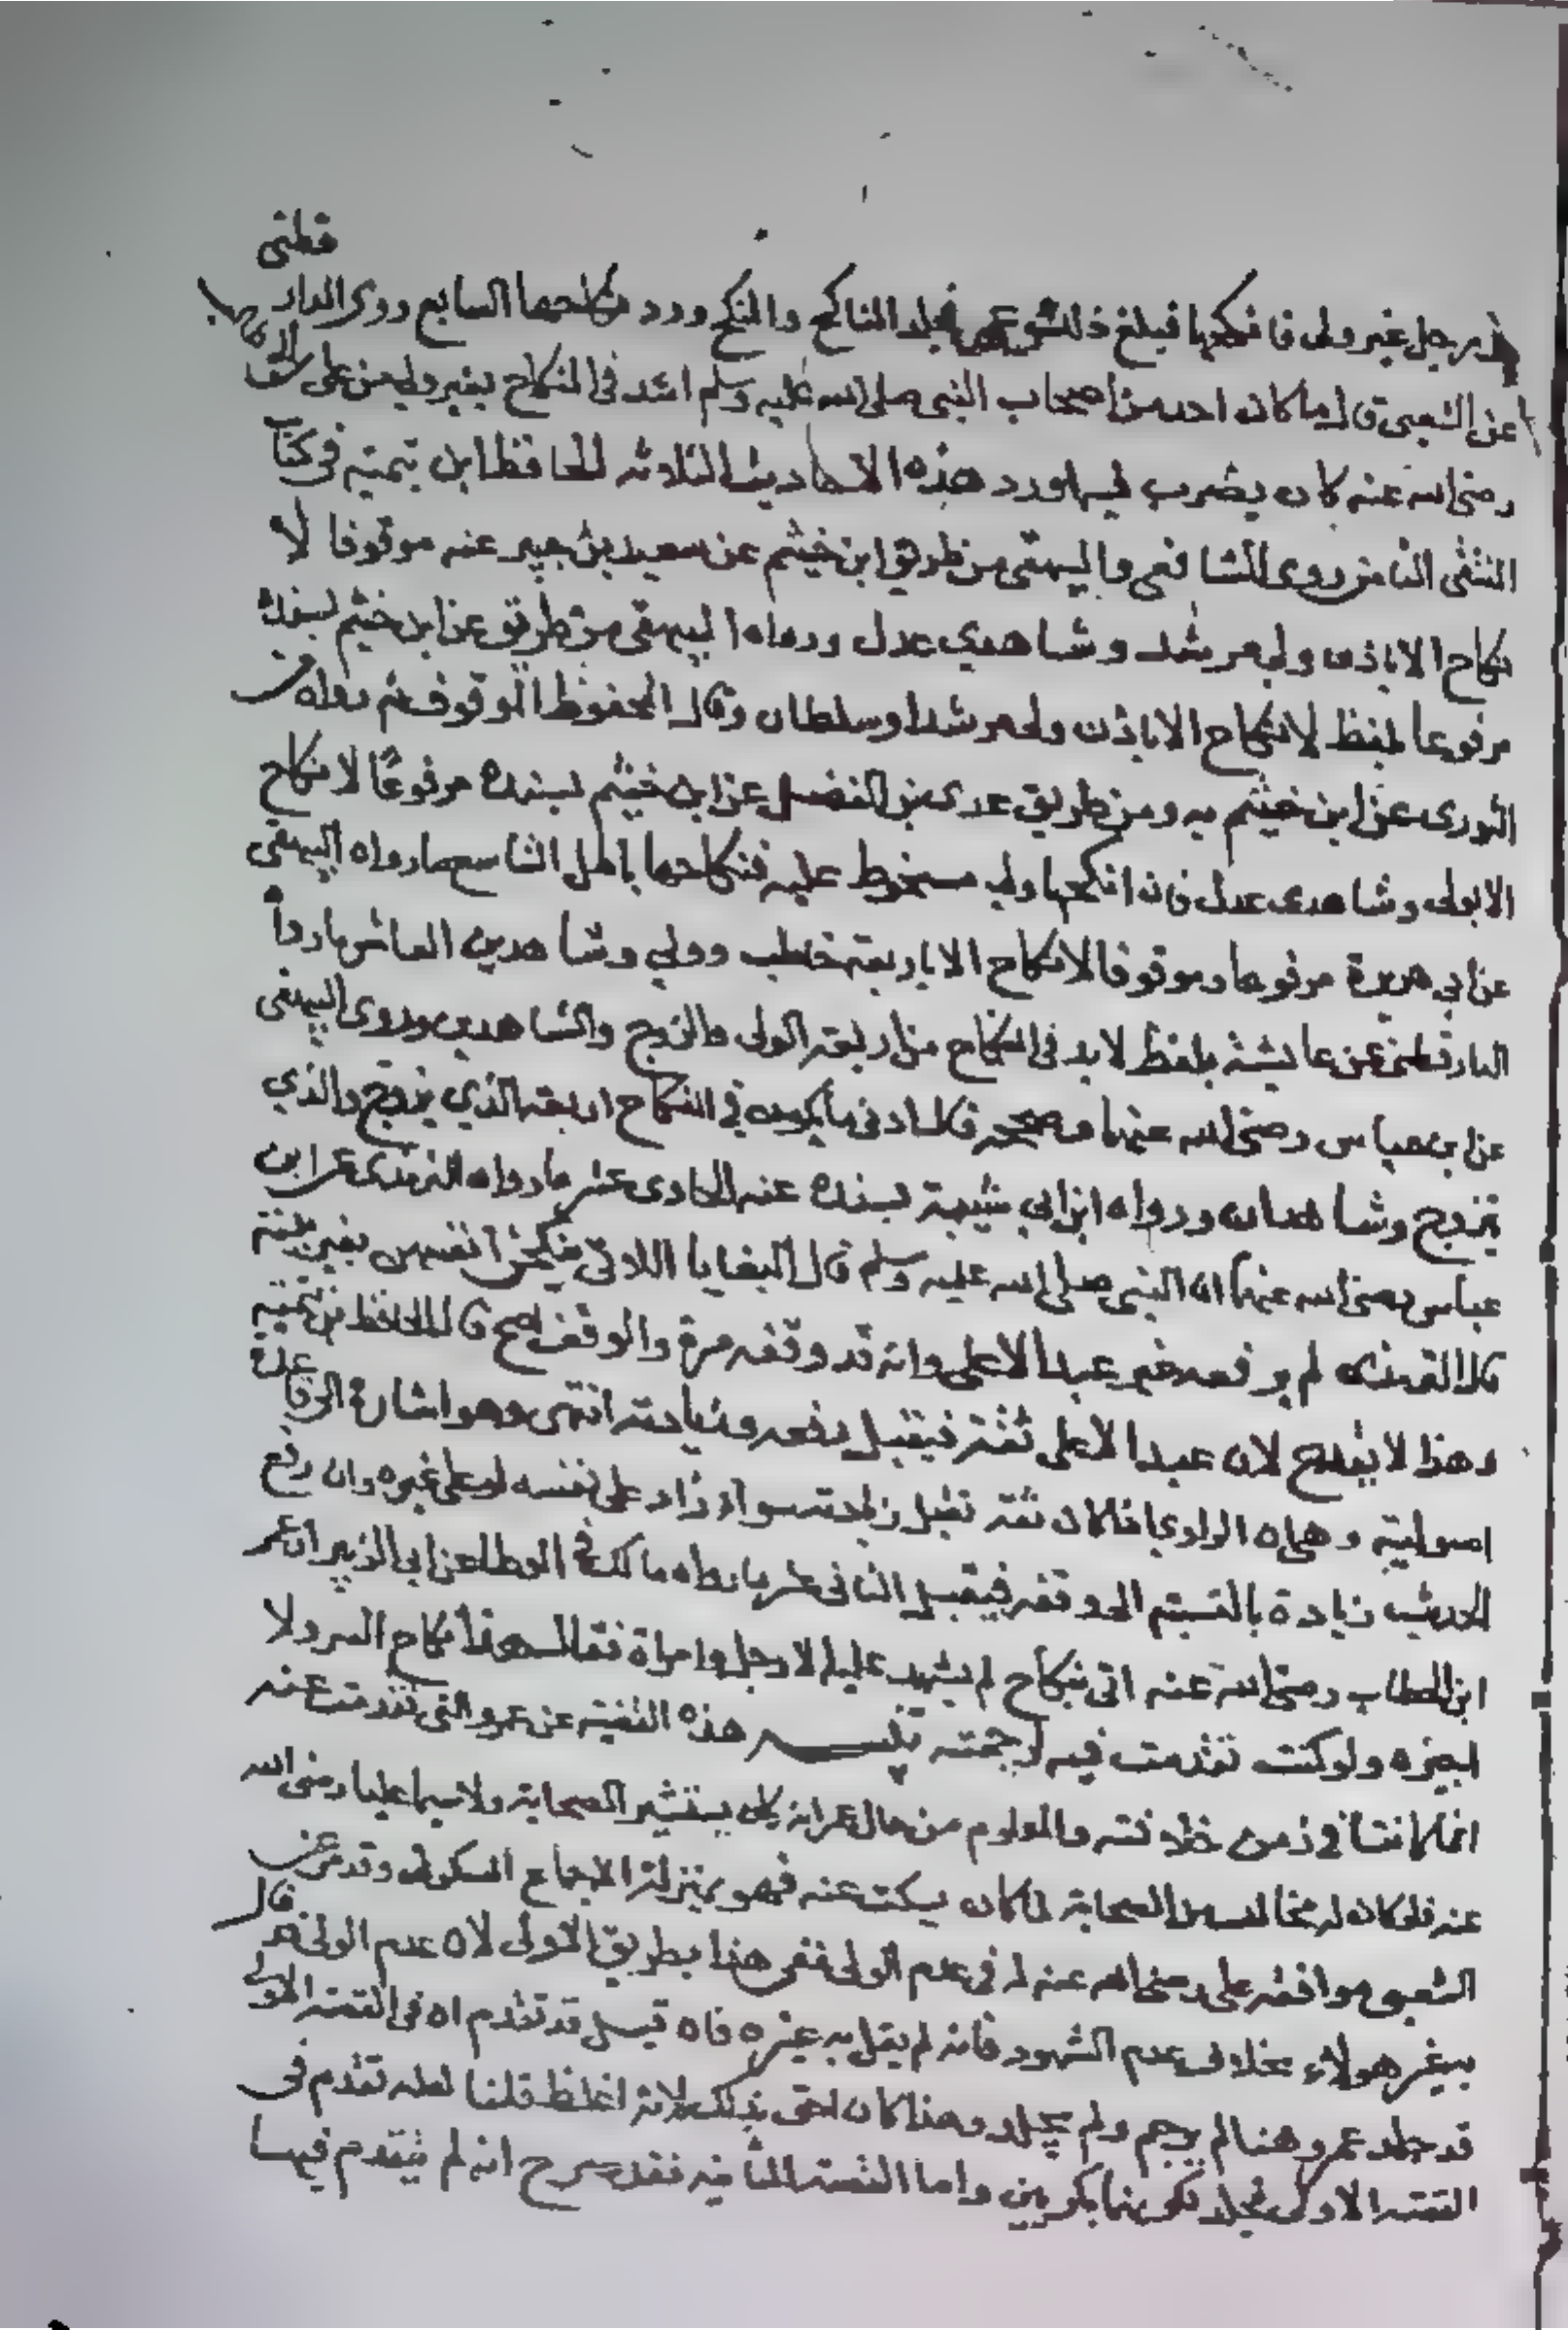 قطنى
رجل غير ولى فانكحها فبلغ ذلك عمر فجلد الناكح والمنكح ورد نكاحها السابع وروى الدار
عن الشعبى قال ما كان احد من اصحاب النبى صلى الله عليه وسلم اشد فى النكاح بغير ولى من على
رضى الله عنه كان يضرب فيه اورد هذه الاحاديث الثلاثه الحافظ ابن تيميه فى كتا
المنتقى الثامن روى الشافعى والبيهقى من طريق ابن خيثم عن سعيد بن جبير عنه موقوفا لا
نكاح الا باذن ولى مرشد وشاهدي عدل ورواه البيهقى من طريق عن ابن خيثم بسنده
مرفوعا بلفظ لا نكاح الا باذن ولى مرشد او سلطان وقال المحفوظ الموقوف ثم رواه من
الثورى عن ابن خيثم به ومن طريق عدى بن الفضل عن ابن خيثم بسنده مرفوعا لا نكاح
الا بولى وشاهدى عدل فان انكحها ولى مسخوط عليه فنكاحها باطل التاسع ما رواه البيهقى
عن ابى هريرة مرفوعا وموقوفا لا نكاح الا باربعة خاطب وولي وشاهدين العاشر ما روا
الدارقطنى عن عايشة بلفظ لا بد فى النكاح من اربعة الولى والزوج والشاهدين وروى البيهقى
عن ابن عباس رضى الله عنهما وصححه قال ادنى ما يكون في النكاح اربعه الذي يزوج والذي
يتزوج وشاهدان ورواه ابن ابي شيبة بسنده عنه الحادى عشر ما رواه الترمذى عن ابن
عباس رضى الله عنهما ان النبى صلى الله عليه وسلم قال البغايا اللاتى ينكحن انفسهن بغير بينة
قال الترمذى لم يرفعه غير عبد الاعلى وانه قد وقفه مرة والوقف اصح قال الحافظ بن تيميه
وهذا لا يقدح لان عبد الاعلى ثقة فيقبل رفعه وزيادته انتهى وهو اشارة الى قاعدة
اصولية وهى ان الراوي اذا كان ثقة تقبل زيادته سواء زاد على نفسه او على غيره وان رفع
الحديث زيادة بالنسبة الى وقفه فيقبل الثانى عشر ما رواه مالك فى الموطا عن ابى الزبير ان عمر
ابن الخطاب رضى الله عنه اتى بنكاح لم يشهد عليه الا رجل وامراة فقال هذا نكاح السر ولا
اجيزه ولو كنت تقدمت فيه لرجمته تنبيه هذه القضية عن عمر والتى تقدمت عنه
انما كانتا في زمن خلافته والمعلوم من حال عمر انه كان يستشير الصحابة ولا سيما عليا رضى الله
عنه فلو كان له مخالف من الصحابة لما كان يسكت عنه فهو بمنزلة الاجماع السكوتى وقد مر عن
الشعبى موافقة على رضى الله عنه له فى عدم الولى ففى هذا بطريق الاولى لان عدم الولى قال
بغير هولاء بخلاف عدم الشهود فانه لم يقل به غيره فان قيل قد تقدم ان فى القصة الاولى
قد جلد عمر وهنا لم يرجم ولم يجلد وهذا كان احق بذلك لانه اغلظ قلنا لعله تقدم فى
القصة الاولى فجلد وامـا القصة الثانيه فقد صرح انه لم يتقدم فيها